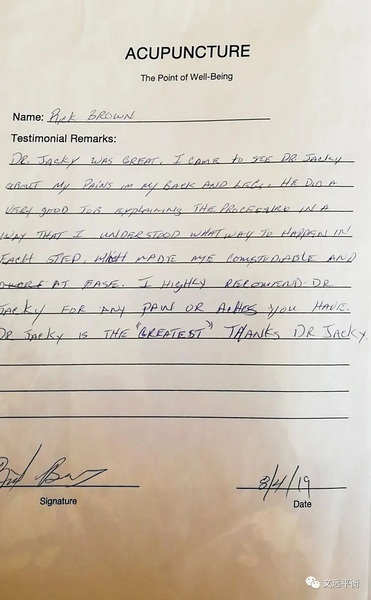 ACUPUNCTURE
The Point of Well-Being
Name: Rick BROWN
Testimonial Remarks:
DR. JACKY WAS GREAT. I CAME to SEE DR. JACKY
ABOUT MY PAINS IN MY BACK AND LEGS. HE DID A
VERY GOOD JOB EXPLAINING THE PROCEEURE IN A
WAY THAT I UNDERSTOOD WHAT WAY TO HAPPEN IN
EACH STEP. WHICH MADE ME AND
AT EASE. I HIGHLY RECOMEND DR
JACKY FOR ANY PAIN OR ACHES YOU HAVE.
DR JACKY IS THE "GREATEST" THANKS DR JACKY.
8/4/19
Signature
Date
文远平衡